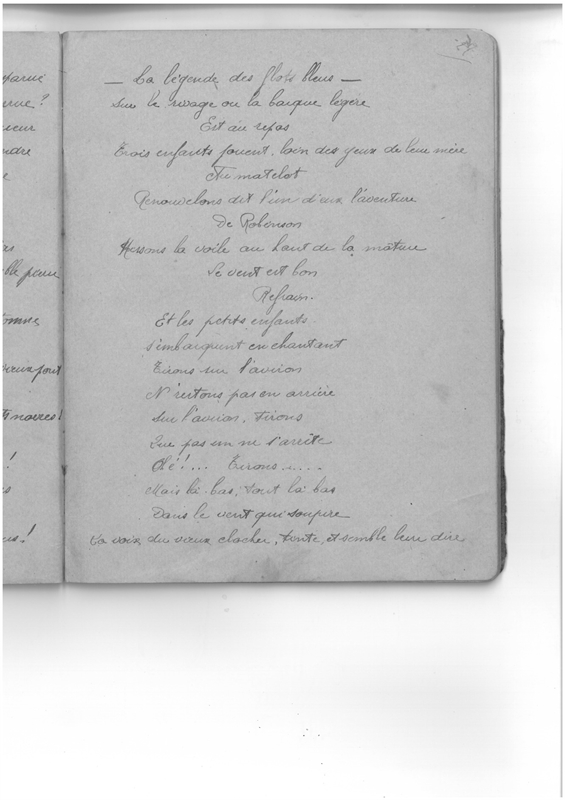 parue
erne?
ueur
ndre
e
as
ble pour
tomne
vieux pont
ts noires!
!
s
us!
— La légende des flots bleus —
Sur le rivage ou la barque légère
Est au repos
Trois enfants jouent, loin des yeux de leur mère
Au matelot
Renouvelons dit l'un d'eux l'aventure
De Robinson
Hissons la voile au haut de la mature
Le vent est bon
Refrain.
Et les petits enfants
s'embarquent en chantant
Tirons sur l'aviron
N'restons pas en arrière
Sur l'aviron, tirons
Que pas un ne s'arrête
Olé!... Tirons.....
Mais là-bas, tout là bas
Dans le vent qui soupire
La voix du vieux clocher, tinte, et semble leur dire